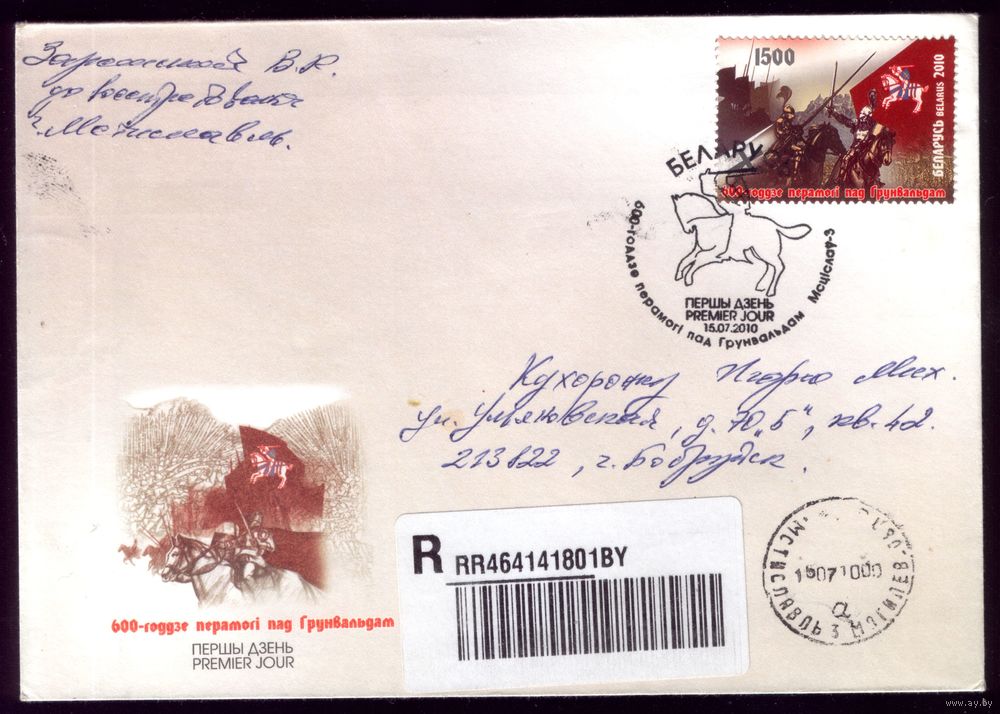 В.К.
до востребования
г. Мстиславль.
1500
БЕЛАРУСЬ BELARUS 2010
600-годдзе перамогі пад Грунвальдам
БЕЛАРУ
600-годдзе перамогі пад Грунвальдам Мсціслаў-3
ПЕРШЫ ДЗЕНЬ
PREMIER JOUR
15.07.2010
Игорю Мих.
ул. Ульяновская, д. 70 „Б“, кв. 42.
213822, г. Бобруйск.
R RR464141801BY
МСТИСЛАВЛЬ 3 МОГИЛЕВ
а
600-годдзе перамогі пад Грунвальдам
ПЕРШЫ ДЗЕНЬ
PREMIER JOUR
www.ay.by